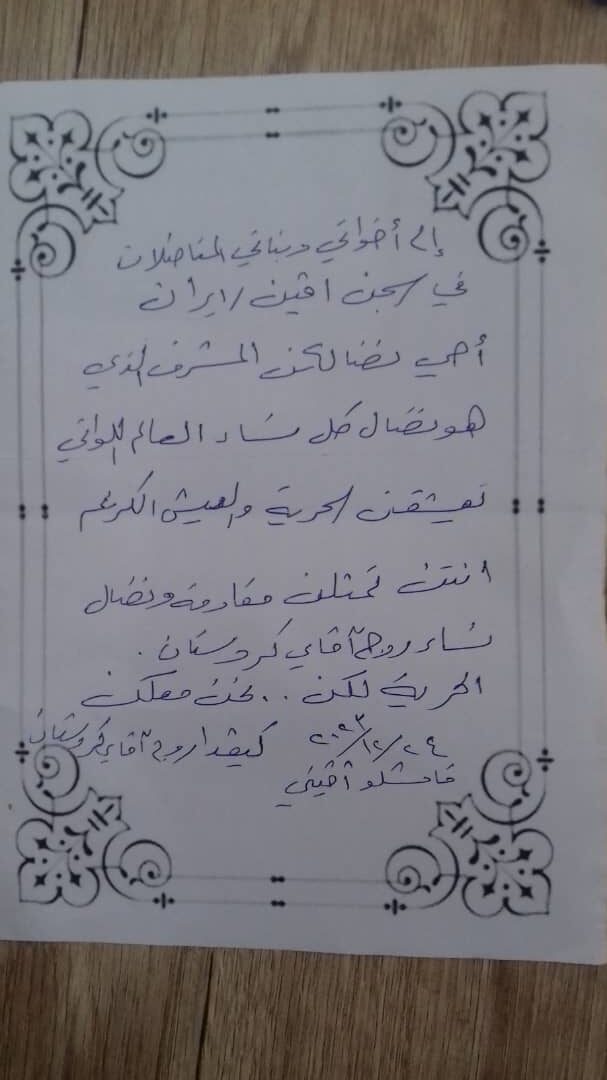 إلى أخواتي وبناتي المناضلات
في سجن اڤين / ايران
أحي نضالكن المشرف الذي
هو نضال كل نساء العالم اللواتي
تعيشقن الحرية والعيش الكريم
انتن تمثلن مقاومة ونضال
نساء روجآڤاي كردستان .
الحرية لكن . . نحن معكن
٢٤ / ١٢ / ٢٠٢٣ روجآڤاي كردستان
قامشلو